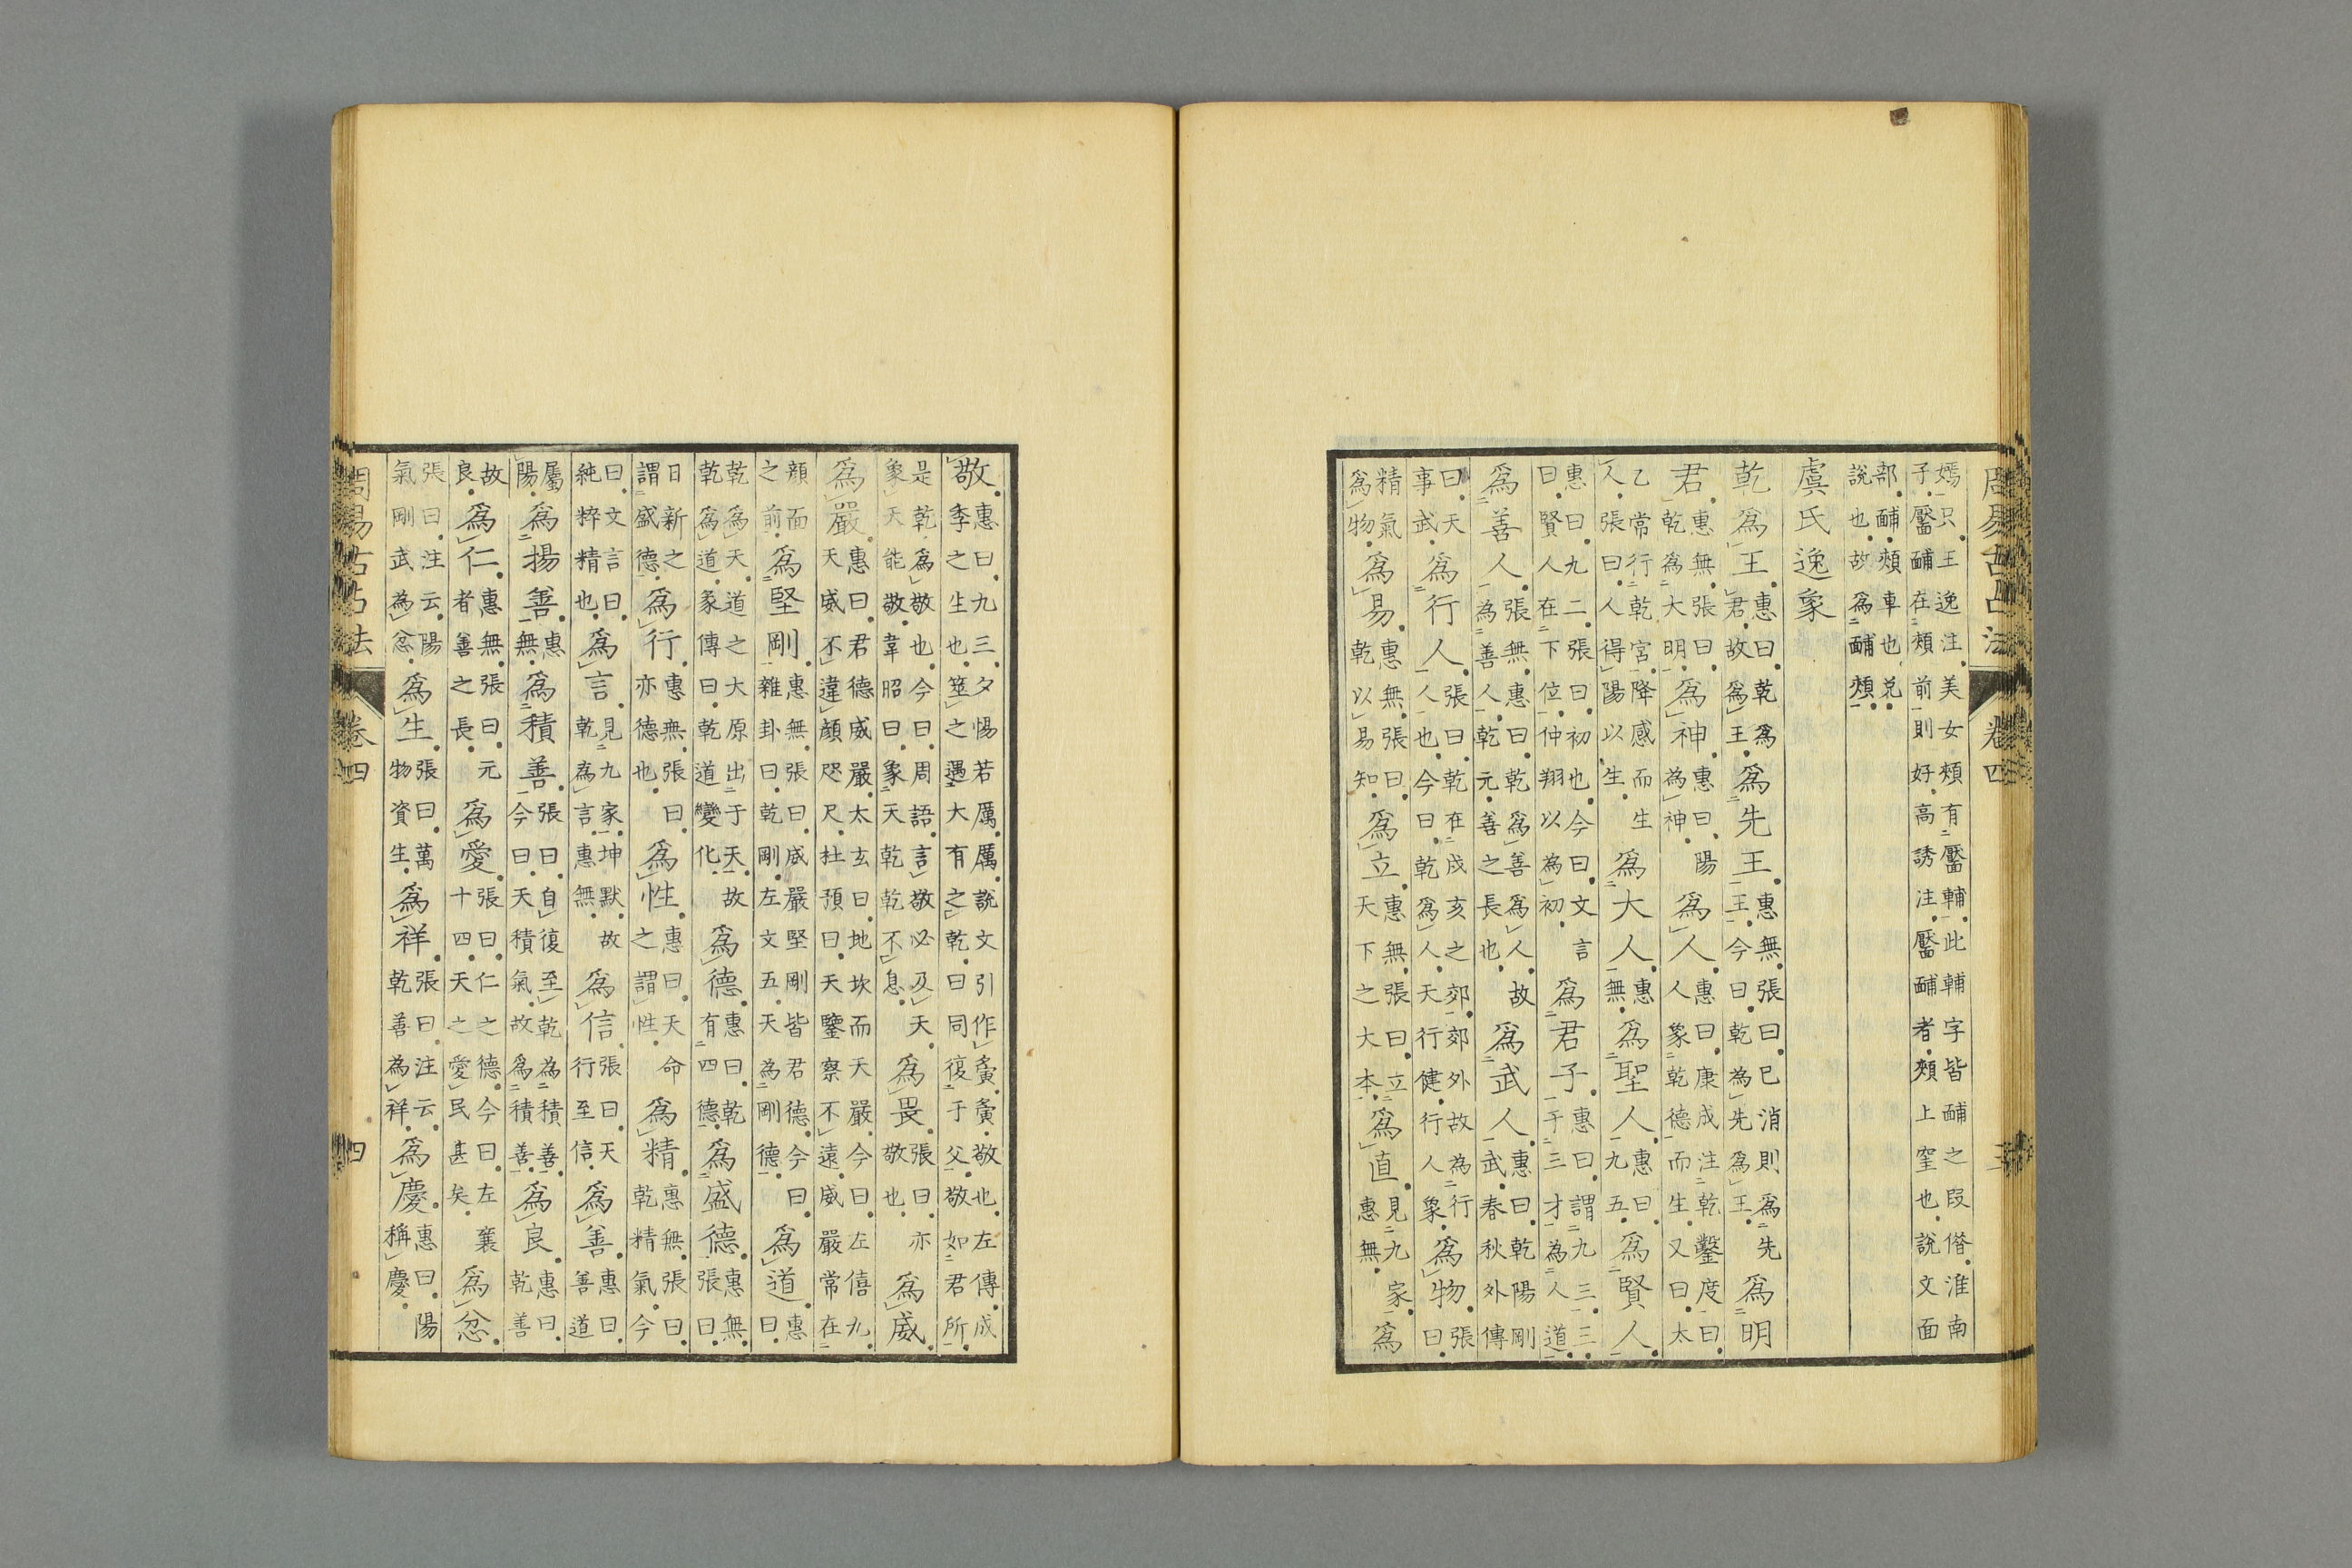 周易古占法 卷四 三
嫣只王逸注美女頰有靨輔此輔字皆酺之叚借淮南
子靨酺在頰前則好高誘注靨酺者頰上窐也說文面
部酺頰車也兌
說也故爲酺頰
虞氏逸象
乾爲王惠曰乾爲君故爲王爲先王惠無張曰已消則爲先王今曰乾為先爲王爲明
君惠無張曰乾爲大明爲神惠曰陽為神爲人惠曰康成注乾鑿度曰人象乾德而生又曰太
乙常行乾宮降感而生人張曰人得陽以生爲大人惠無爲聖人惠曰九五爲賢人
惠曰九二張曰初也今曰文言曰賢人在下位仲翔以為初爲君子惠曰謂九三三于三才為人道
爲善人張無惠曰乾爲善爲人故為善人乾元善之長也爲武人惠曰乾陽剛武春秋外傳
曰天事武爲行人張曰乾在戌亥之郊郊外故為行人也今曰乾爲人天行健行人象爲物張曰
精氣爲物爲易惠無張曰乾以易知爲立惠無張曰立天下之大本爲直見九家惠無爲
敬惠曰九三夕惕若厲厲說文引作夤夤敬也左傳成季之生也筮之遇大有之乾曰同復于父敬如君所
是乾爲敬也今曰周語言敬必及天象天能敬韋昭曰象天乾乾不息爲畏張曰亦敬也爲威
爲嚴惠曰君德威嚴太玄曰地坎而天嚴今曰左僖九天威不違顔咫尺杜預曰天鑒察不遠威嚴常在
顔面之前爲堅剛惠無張曰威嚴堅剛皆君德今曰雜卦曰乾剛左文五天為剛德爲道惠曰
乾為天道之大原出于天故乾爲道彖傳曰乾道變化爲德惠曰乾有四德爲盛德惠無張曰
日新之謂盛德爲行惠無張曰亦德也爲性惠曰天命之謂性爲精惠無張曰乾精氣今
曰文言曰純粹精也爲言見九家坤默故乾為言惠無爲信張曰天行至信爲善惠曰善道
屬陽爲揚善惠無爲積善張曰自復至乾為積善今曰天積氣故爲積善爲良惠曰乾善
故良爲仁惠無張曰元者善之長爲愛張曰仁之德今曰左襄十四天之愛民甚矣爲忿
張曰注云陽氣剛武為忿爲生張曰萬物資生爲祥張曰注云乾善為祥爲慶惠曰陽稱慶
周易古占法 卷四 四